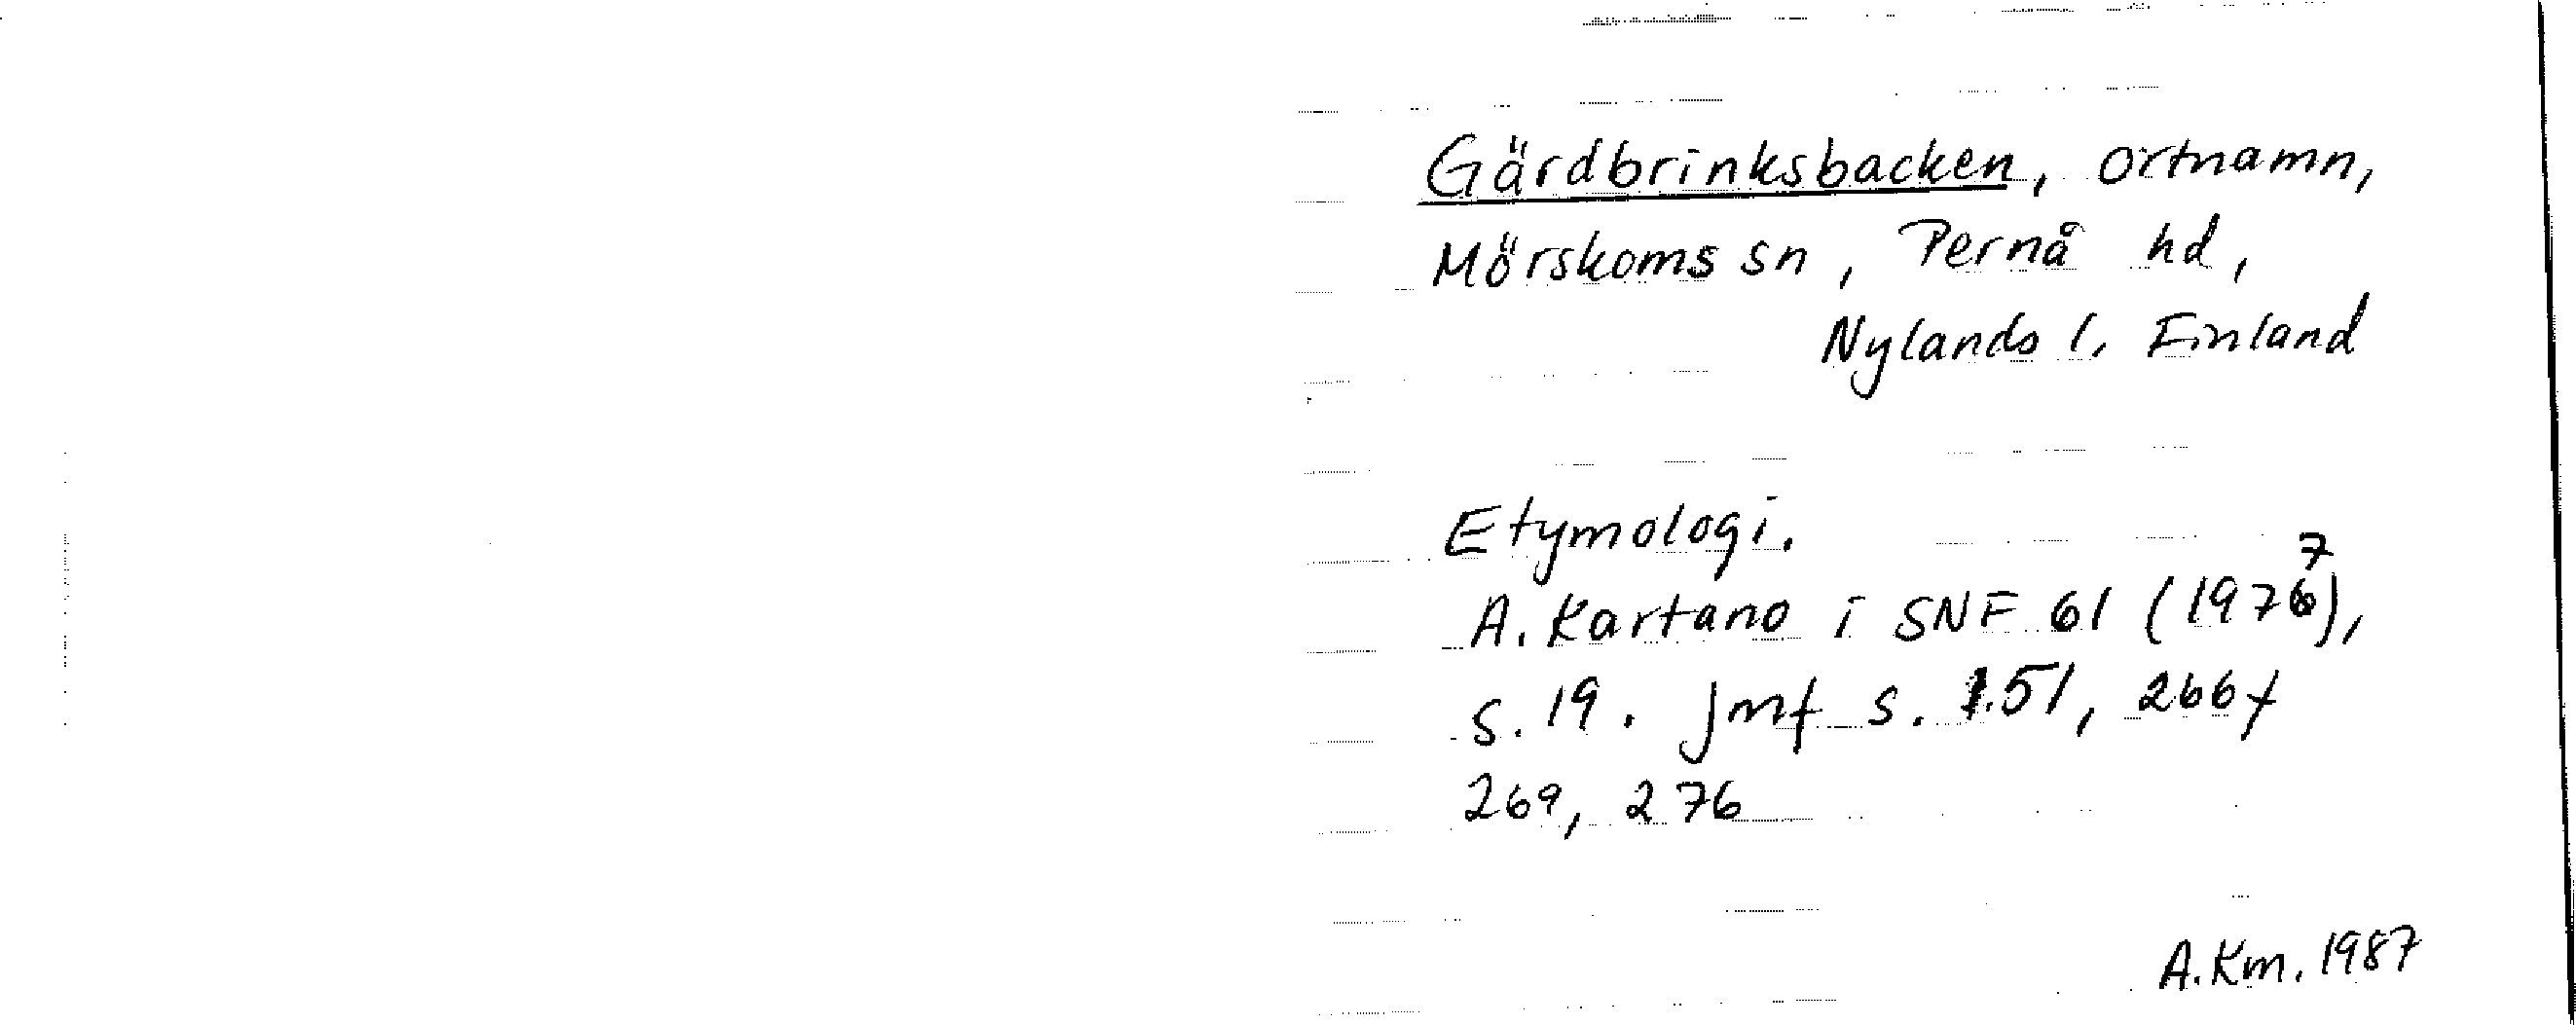 Gärdbrinksbacken, ortnamn,
Mörskoms sn, Pernå hd,
Nylands l, Finland
Etymologi.
A. Kartano i SNF 61 (1977),
s. 19. Jmf s. 151, 266f
269, 276
A.Km. 1987